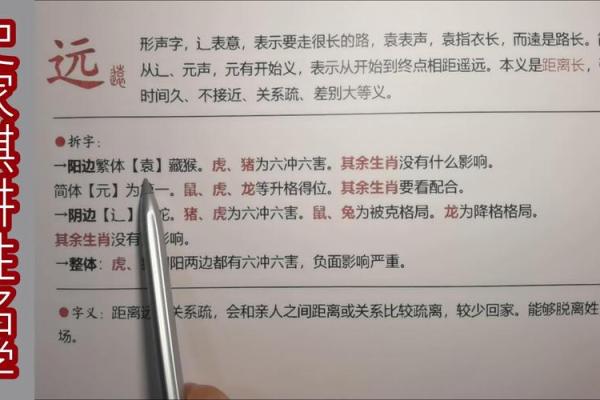 家祺讲姓名学
远
遠
形声字，辶表意，表示要走很长的路，袁表声，袁指衣长，而遠是路长。
从辶、元声，元有开始义，表示从开始到终点相距遥远。本义是距离长，
时间久、不接近、关系疏、差别大等义。
●拆字：
→阳边繁体【袁】藏猴。虎、猪为六冲六害。其余生肖没有什么影响。
简体【元】为第一。鼠、虎、龙等升格得位。其余生肖要看配合。
→阴边【辶】蛇。猪、虎为六冲六害。鼠、兔为被克格局。龙为降格格局。
其余生肖没有影响。
→整体：虎、阴阳两边都有六冲六害，负面影响严重。
●字义：距离远、关系疏，会和亲人之间距离或关系比较疏离，较少回家。能够脱离姓
场。